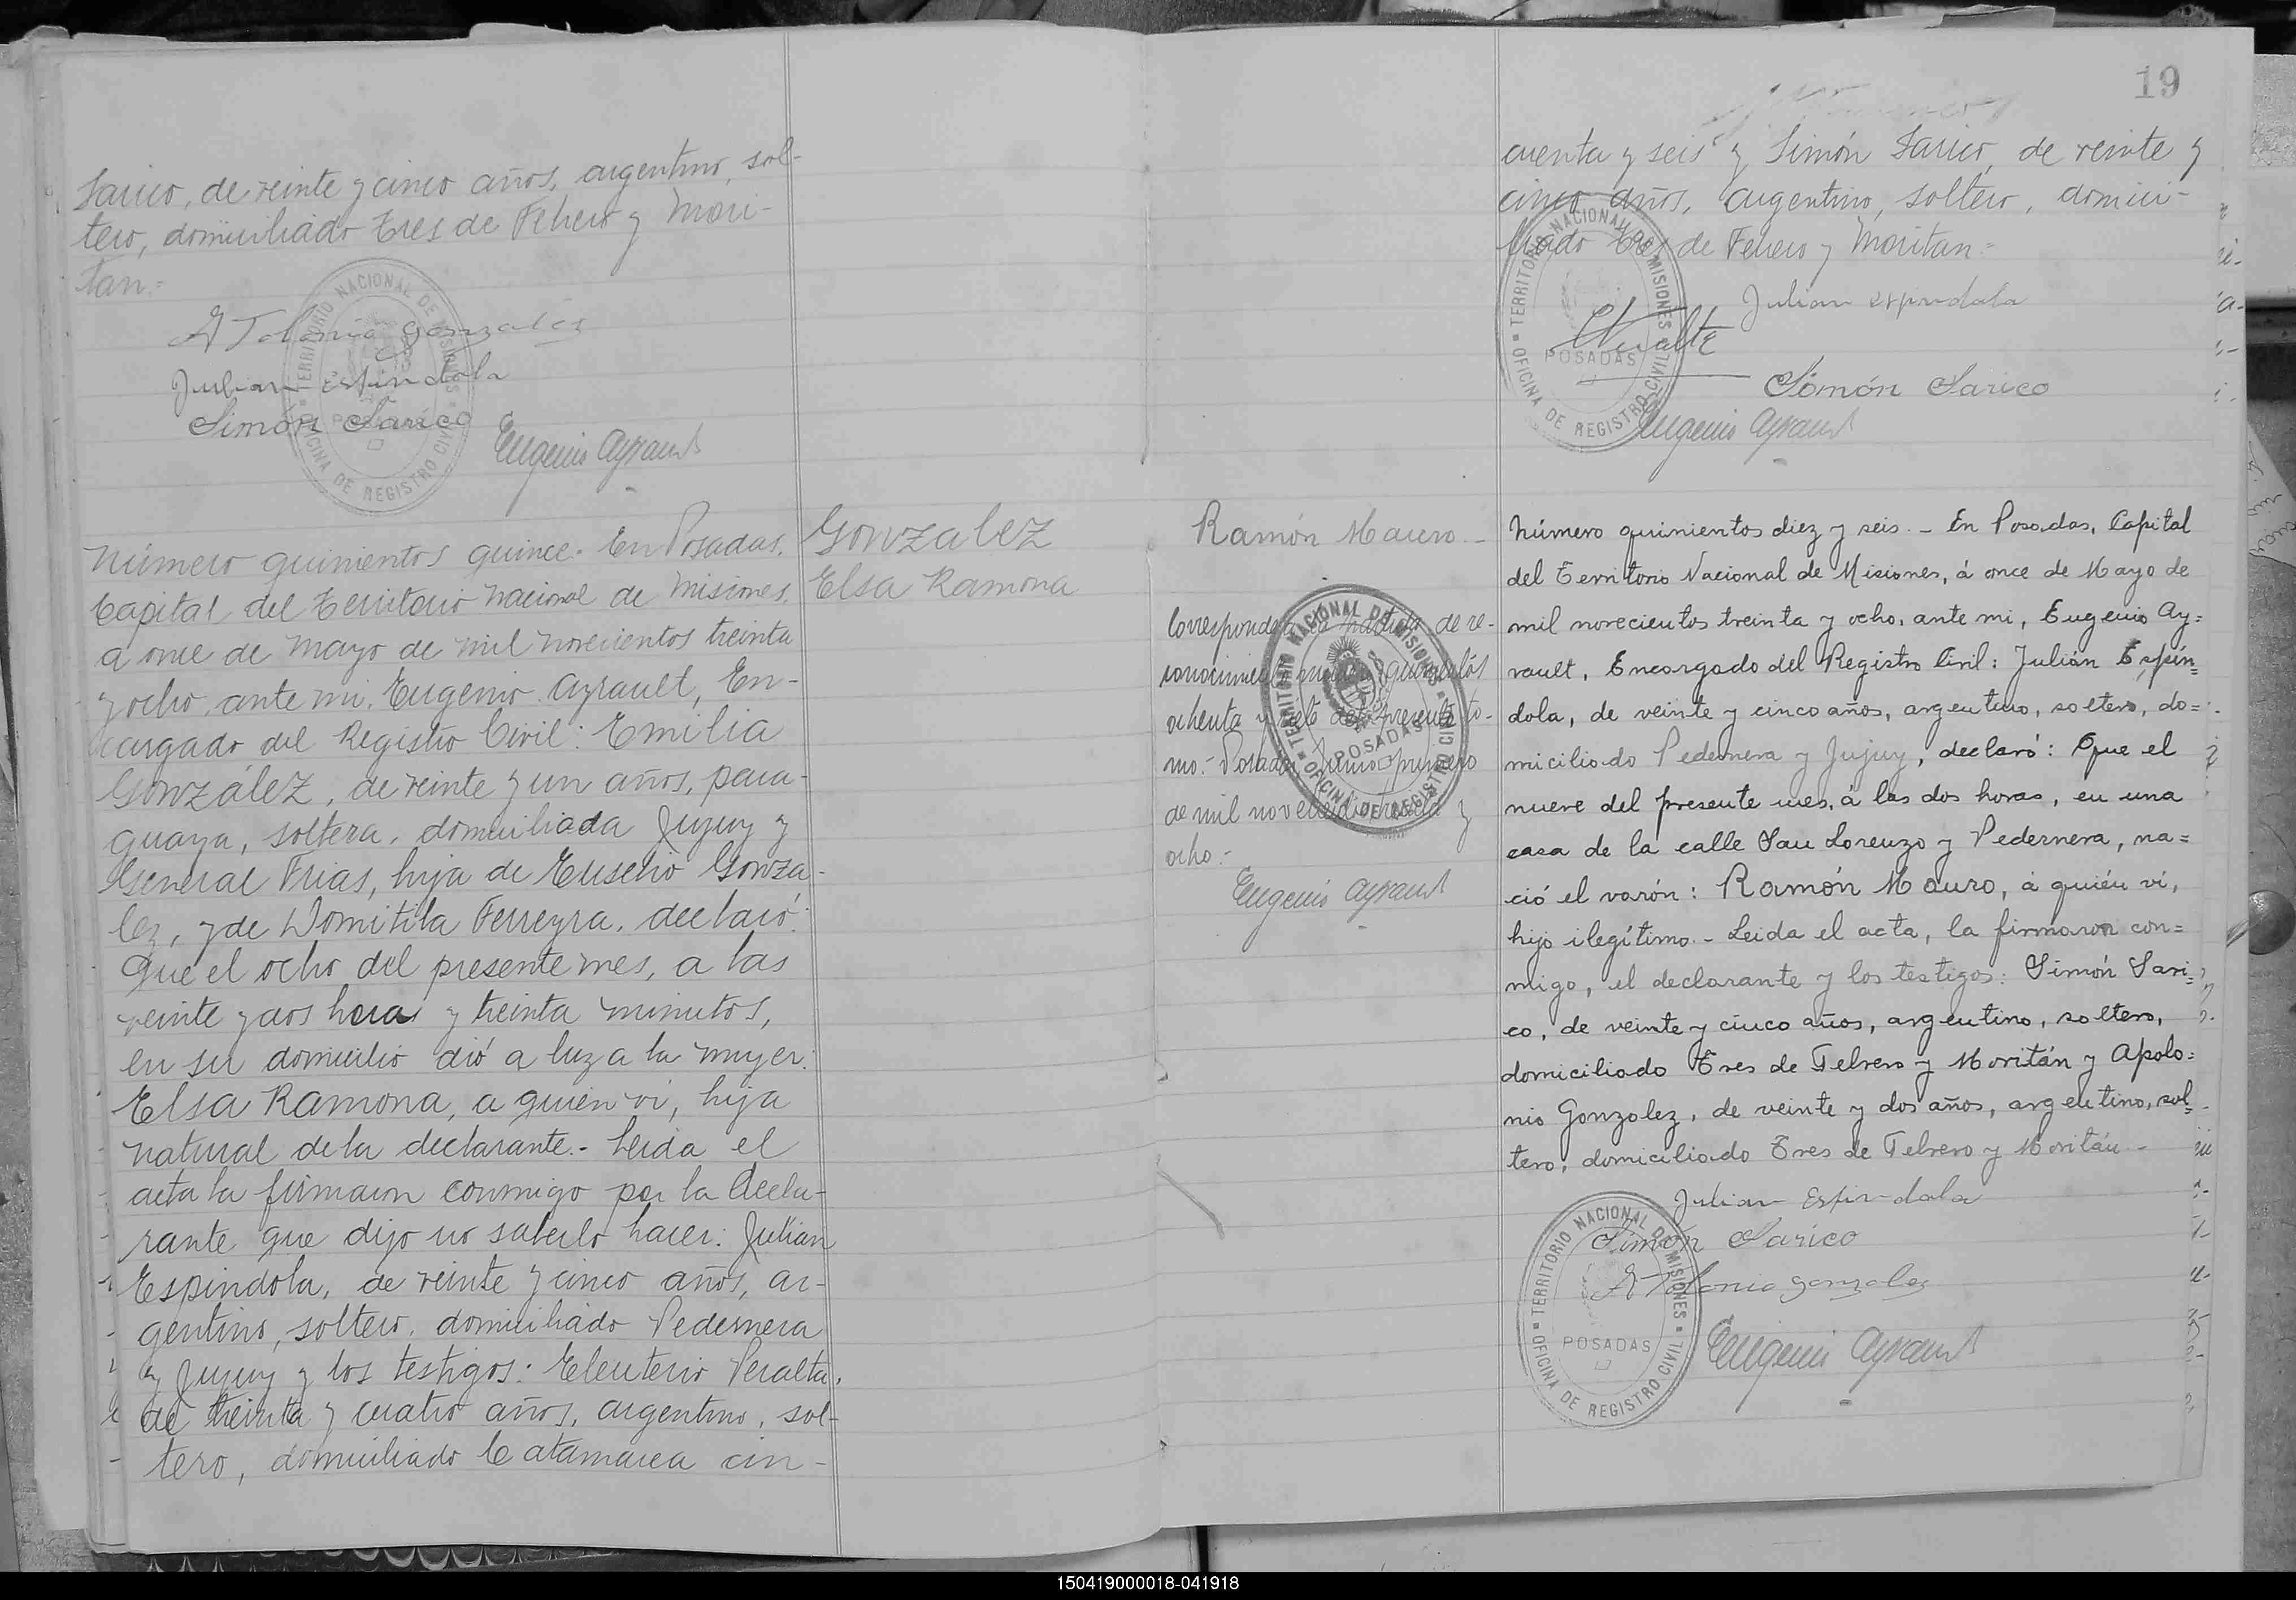 Sarico, de veinte y cinco años, argentino, sol-
tero, domiciliado Tres de Febrero y Mori-
tan=
Apolonio Gonzales
Julian Espindola
Simón Sarico
Eugenio Ayrault
TERRITORIO NACIONAL DE MISIONES
POSADAS
OFICINA DE REGISTRO CIVIL
Gonzalez
Elsa Ramona
Número quinientos quince. En Posadas,
Capital del Territorio Nacional de Misiones,
a once de Mayo de mil novecientos treinta
y ocho, ante mi, Eugenio Ayrault, En-
cargado del Registro Civil: Emilia
González, de veinte y un años, para-
guaya, soltera, domiciliada Jujuy y
General Frias, hija de Eusebio Gonza-
lez, y de Domitila Ferreyra, declaró:
Que el ocho del presente mes, a las
veinte y dos horas y treinta minutos,
en su domicilio dió a luz a la mujer:
Elsa Ramona, a quien vi, hija
natural de la declarante.- Leida el
acta la firmaron conmigo por la decla-
rante que dijo no saberlo hacer: Julian
Espindola, de veinte y cinco años, ar-
gentino, soltero, domiciliado Pedernera
y Jujuy y los testigos: Eleuterio Peralta,
de treinta y cuatro años, argentino, sol-
tero, domiciliado Catamarca cin-
19
cuenta y seis y Simón Sarico, de veinte y
cinco años, argentino, soltero, domici-
liado Tres de Febrero y Moritan=
Julian Espindola
Simón Sarico
Eugenio Ayrault
TERRITORIO NACIONAL DE MISIONES
POSADAS
OFICINA DE REGISTRO CIVIL
Ramón Mauro.-
Corresponde a la partida de re-
conocimiento número quinientos
ochenta y siete del presente to-
mo.- Posadas, Junio primero
de mil novecientos treinta y
ocho.-
Eugenio Ayrault
TERRITORIO NACIONAL DE MISIONES
POSADAS
OFICINA DE REGISTRO CIVIL
Número quinientos diez y seis.- En Posadas, Capital
del Territorio Nacional de Misiones, á once de Mayo de
mil novecientos treinta y ocho, ante mi, Eugenio Ay=
rault, Encargado del Registro Civil: Julián Espín=
dola, de veinte y cinco años, argentino, soltero, do=
miciliado Pedernera y Jujuy, declaró: Que el
nueve del presente mes, á las dos horas, en una
casa de la calle San Lorenzo y Pedernera, na=
ció el varón: Ramón Mauro, á quién vi,
hijo ilegítimo.- Leida el acta, la firmaron con=
migo, el declarante y los testigos: Simón Sari=
co, de veinte y cinco años, argentino, soltero,
domiciliado Tres de Febrero y Moritán y Apolo=
nio Gonzalez, de veinte y dos años, argentino, sol=
tero, domiciliado Tres de Febrero y Moritán.-
Julian Espindola
Simón Sarico
Apolonio Gonzales
Eugenio Ayrault
TERRITORIO NACIONAL DE MISIONES
POSADAS
OFICINA DE REGISTRO CIVIL
150419000018-041918